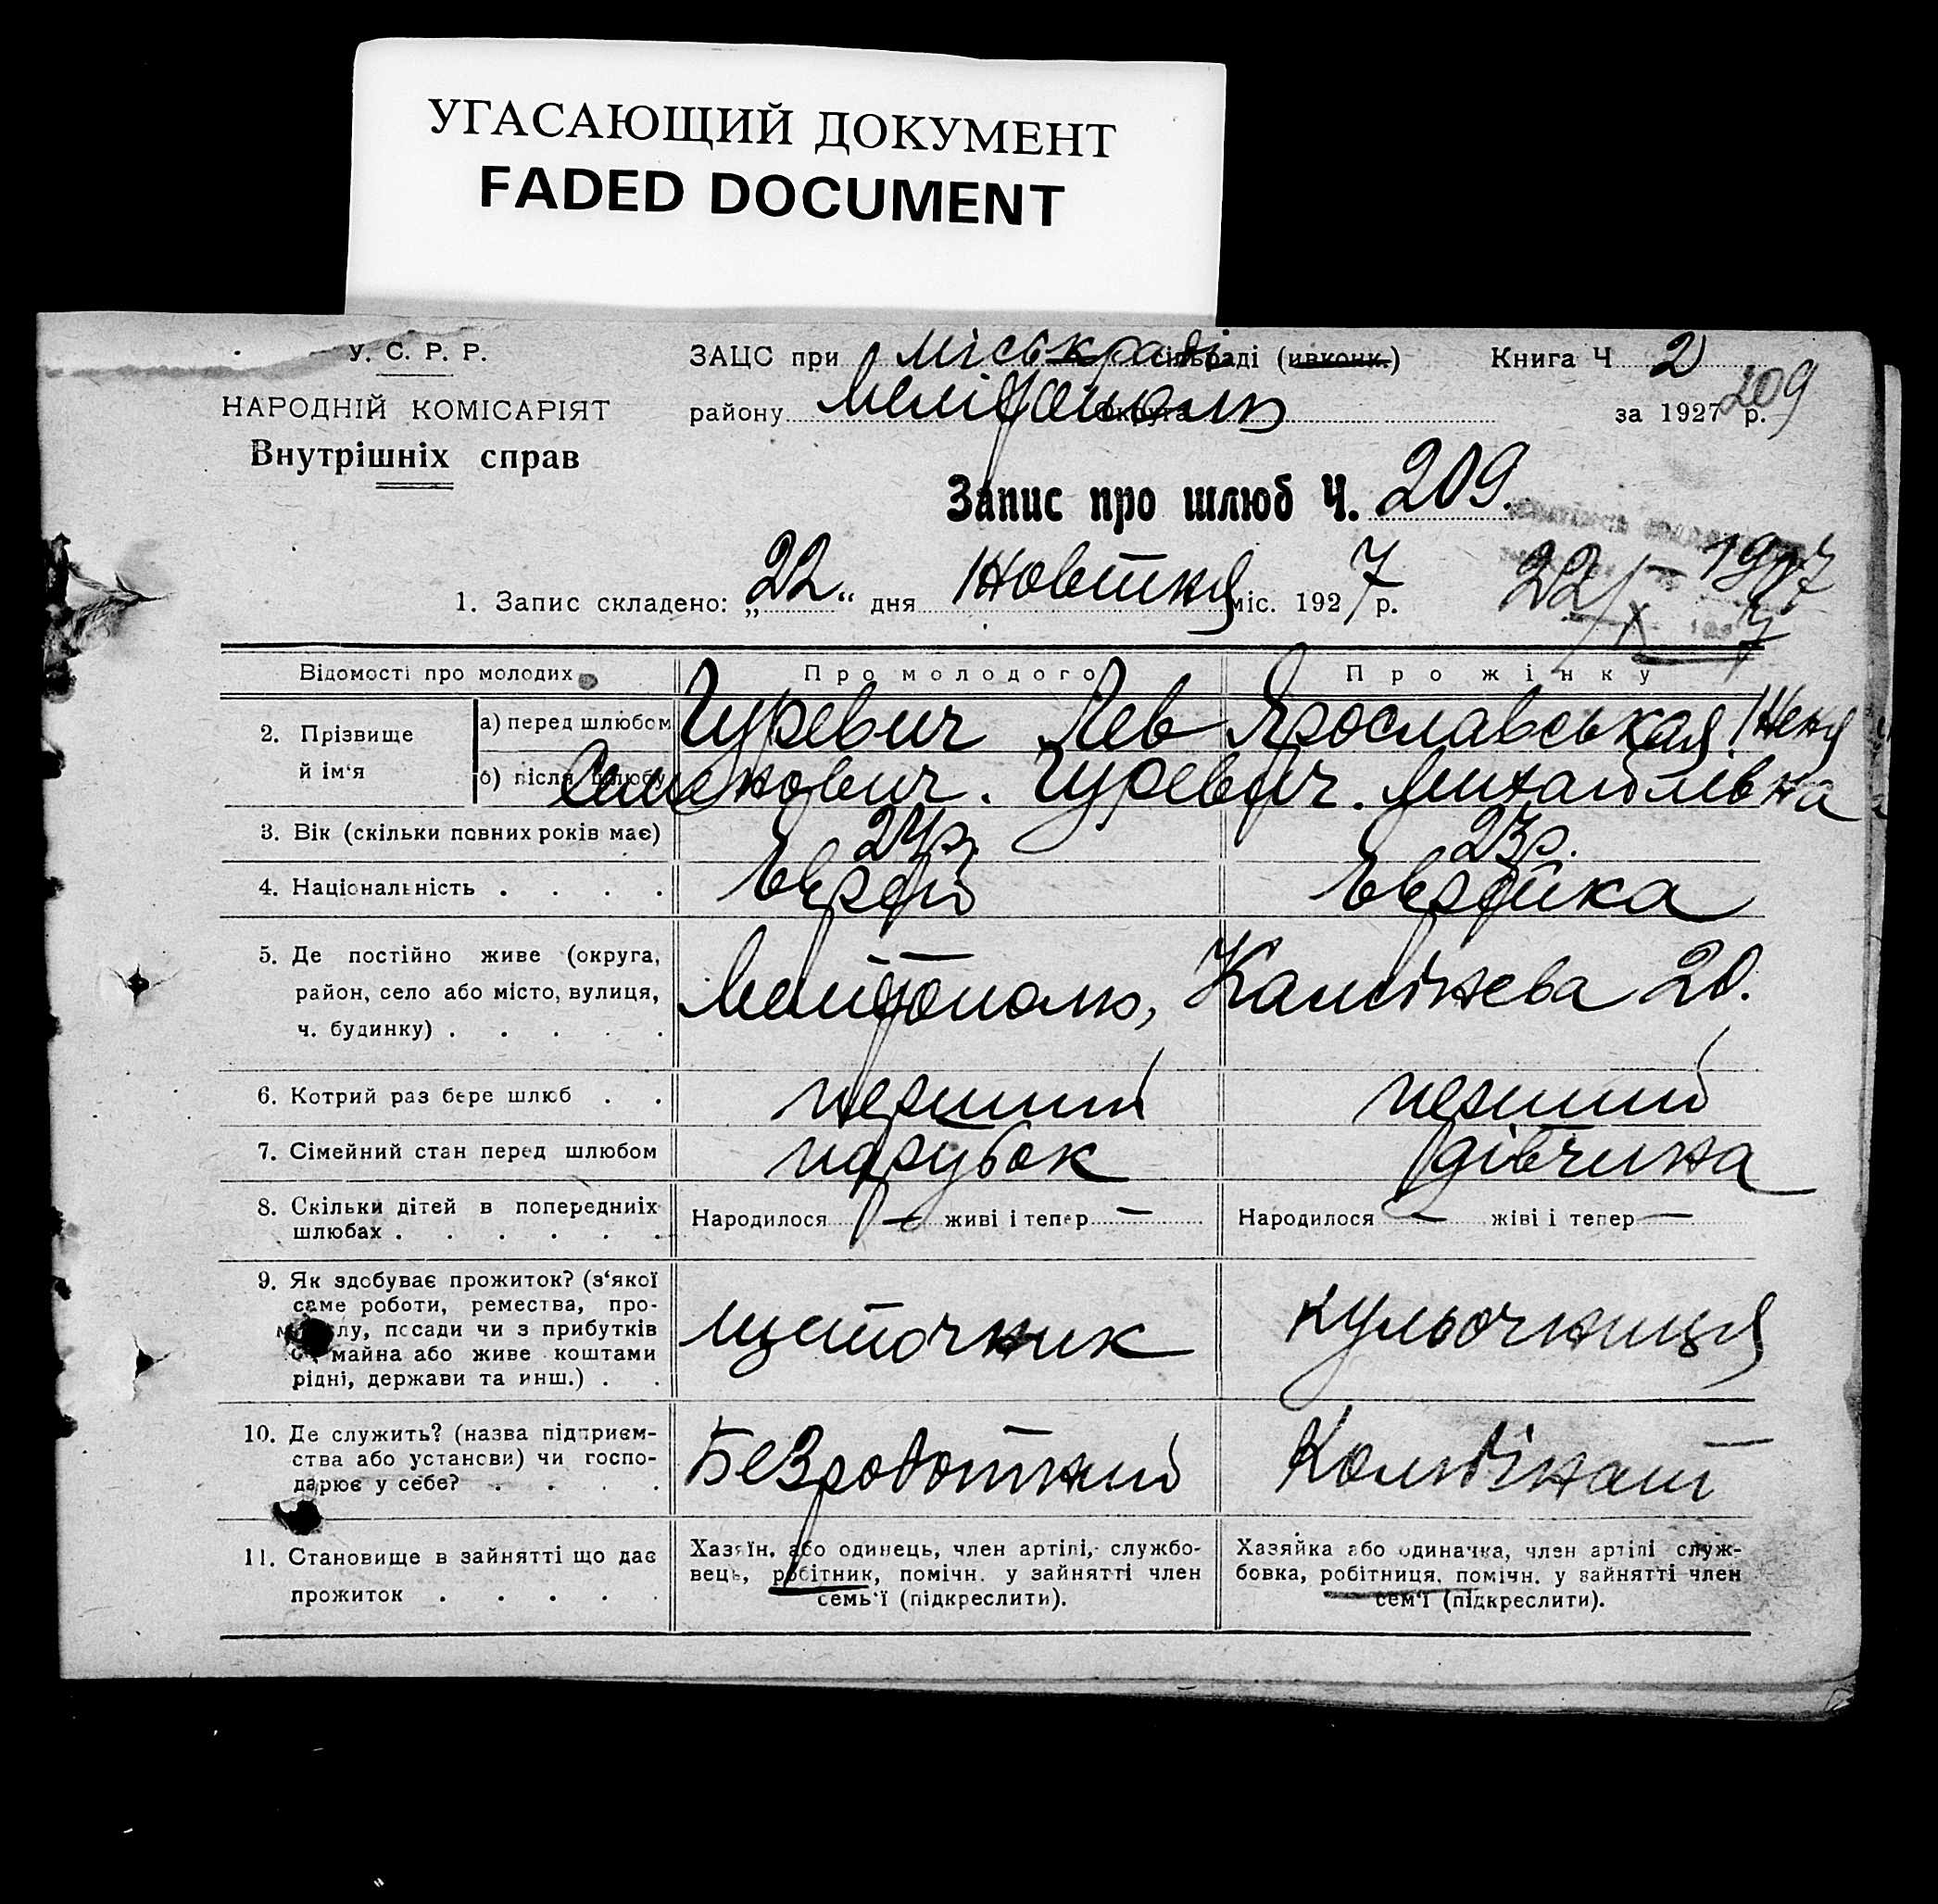 УГАСАЮЩИЙ ДОКУМЕНТ
FADED DOCUMENT
У. С. Р. Р.
НАРОДНІЙ КОМІСАРІЯТ
Внутрішніх справ
ЗАЦС при міськраді сільраді (ивконк.) Книга Ч 2
району Мелітополь округа за 1927 р.
209
Запис про шлюб Ч. 209.
1. Запис складено: „22“ дня Жовтня міс. 1927 р.
22/X 1927
Відомості про молодих Про молодого Про жінку
2. Прізвище й ім‘я
а) перед шлюбом Гуревич Лев Ярославськая Женя
б) після шлюбу Семенович. Гуревич. Михайлівна
3. Вік (скільки повних років має) 24р. 23р.
4. Національність . . . . Єврей Єврейка
5. Де постійно живе (округа,
район, село або місто, вулиця,
ч. будинку) . . . . .
Мелітополь, 20.
6. Котрий раз бере шлюб . . перший перший
7. Сімейний стан перед шлюбом парубок дівчина
8. Скільки дітей в попередниіх
шлюбах . . . . . .
Народилося — живі і тепер — Народилося — жіві і тепер —
9. Як здобуває прожиток? (з‘якої
саме роботи, ремества, про-
лу, посади чи з прибутків
майна або живе коштами
рідні, держави та инш.) . .
щиточник кульочниця
10. Де служить? (назва підприєм-
ства або установи) чи госпо-
дарює у себе? . . . .
Безроботний Комбінат
11. Становище в зайнятті що дає
прожиток . . . . .
Хазяїн, або одинець, член артілі, службо-
вець, робітник, помічн. у зайнятті член
семь‘ї (підкреслити).
Хазяйка або одиначка, член артілі служ-
бовка, робітниця, помічн. у зайнятті член
сем‘ї (підкреслити).